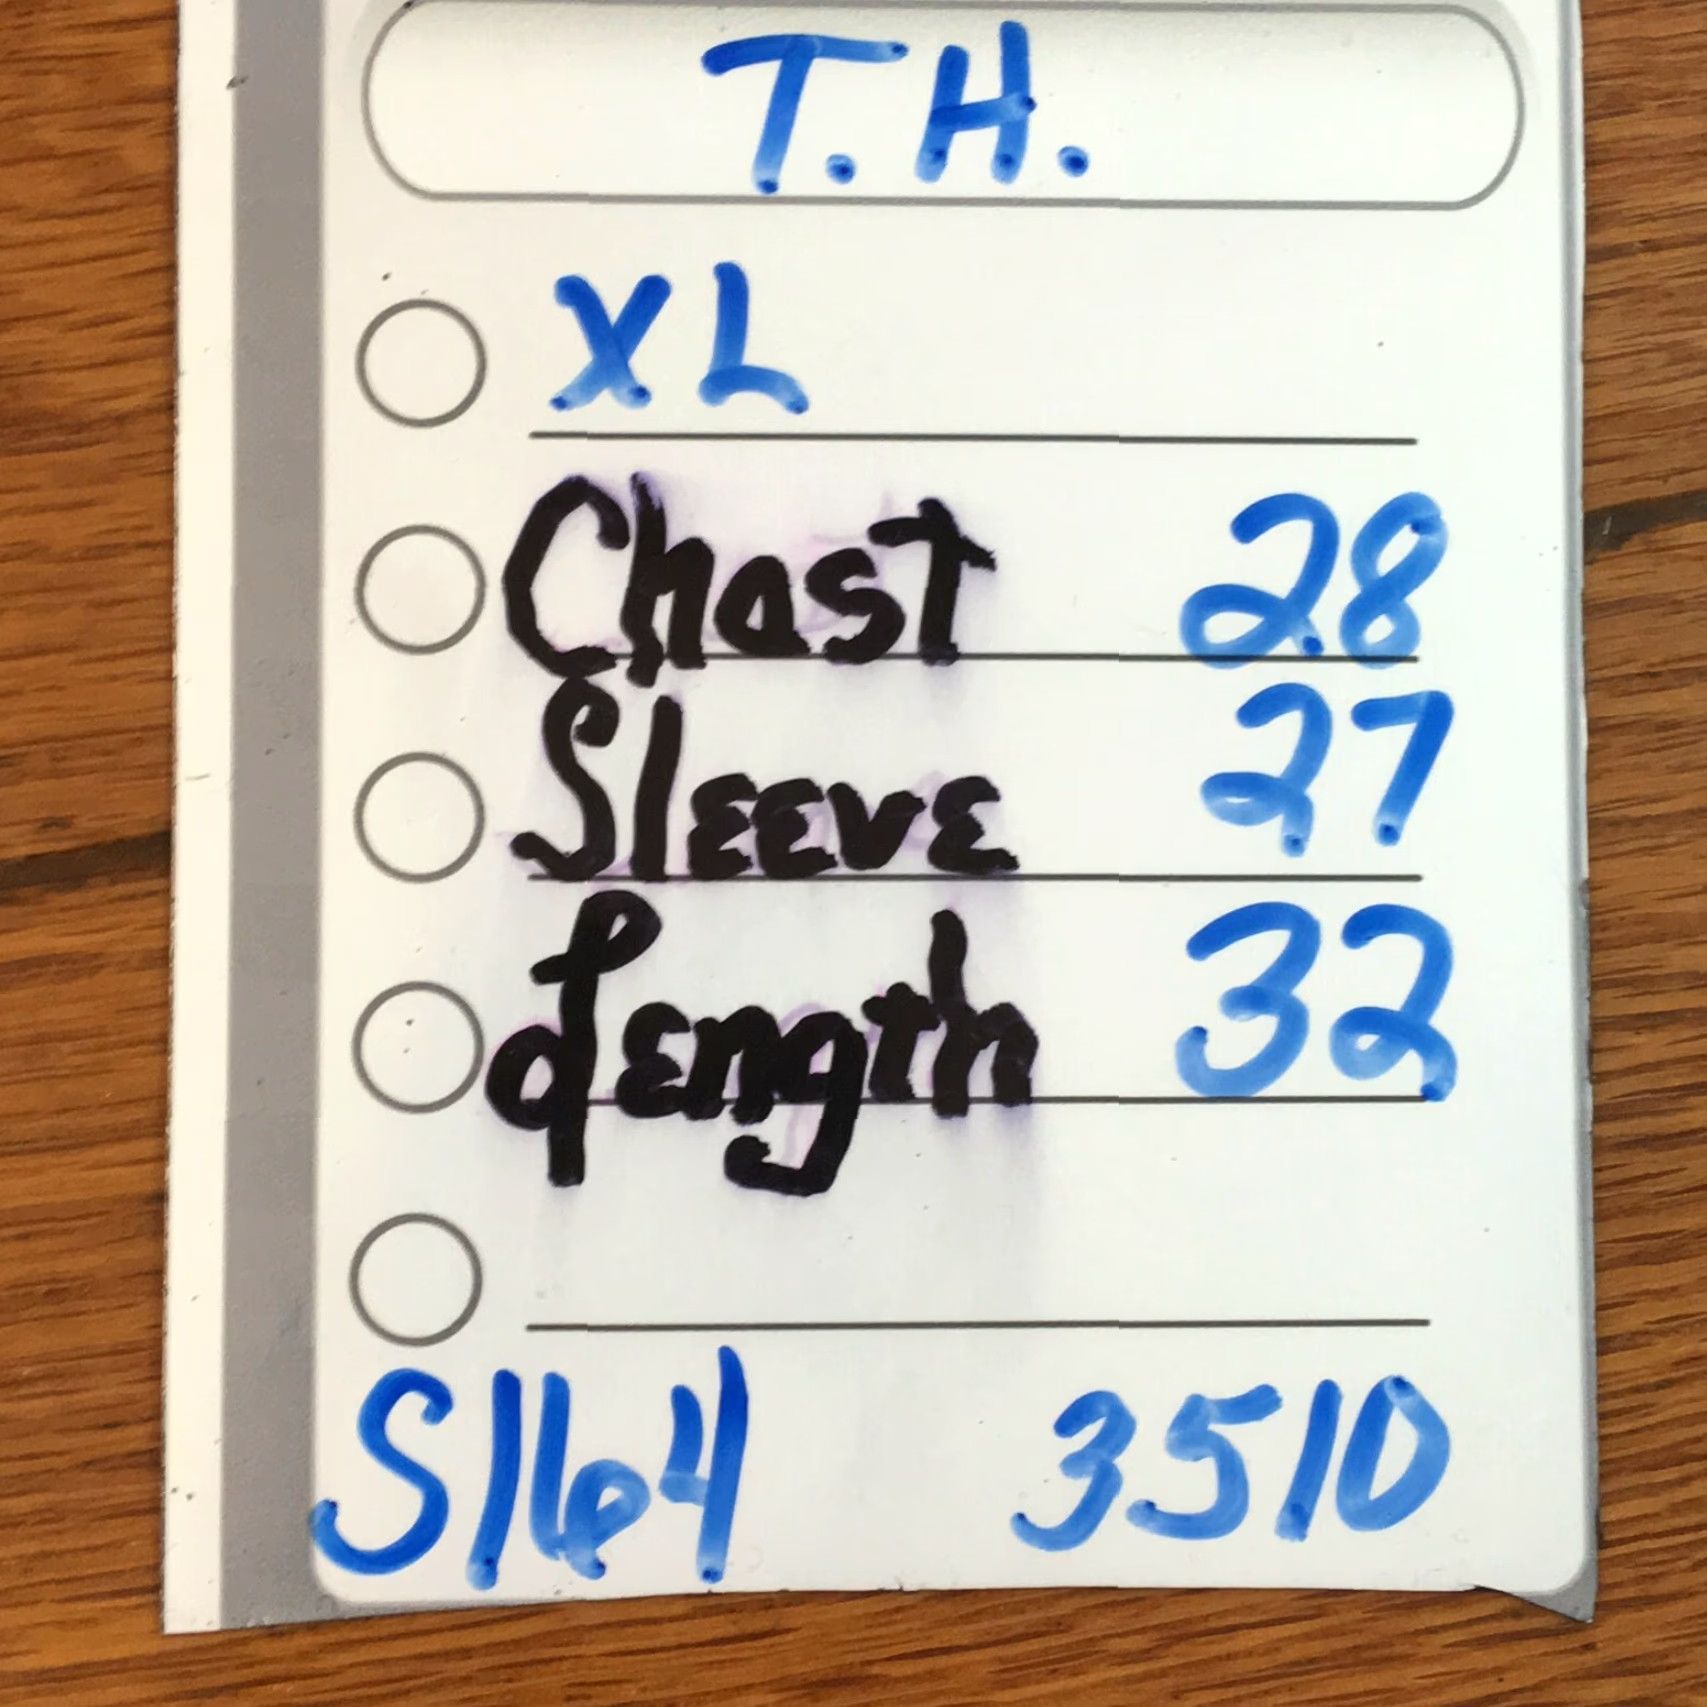 T.H.
XL
Chast 28
Sleeve 27
Length 32
S164 3510